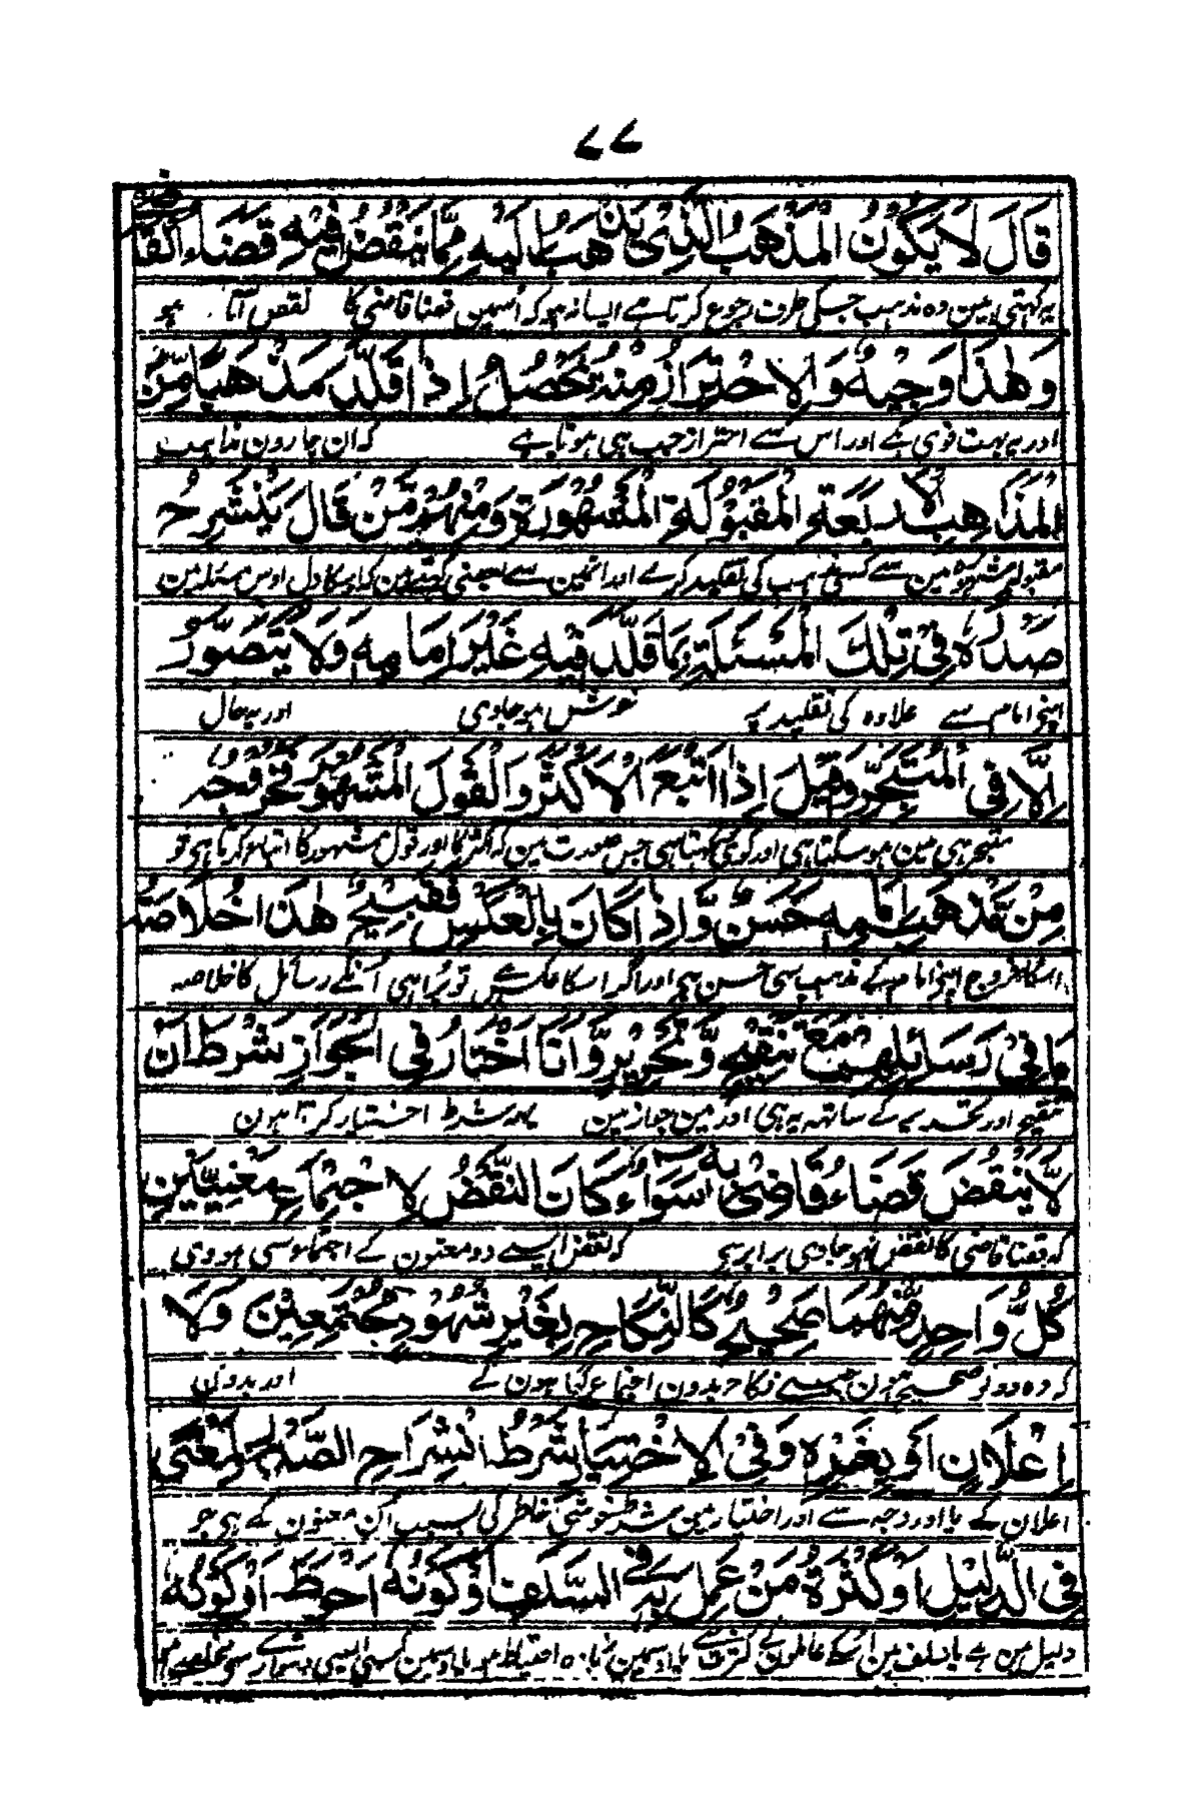 ۷۷
قَالَ لَا يَكُوْنُ الْمَذْهَبُ الَّذِىْ يَذْهَبُ اِلَيْهِ مِمَّا يَنْقُضُ فِيْهِ قَضَاءُ الْقَاضِىْ
یہ کہتی ہین وہ مذہب جسکی طرف رجوع کرتا ہے ایسا نہو کہ اُسمین قضا قاضی کا نقض آتا ہو
وَهٰذَا وَجِيْهٌ وَالْاِحْتِرَازُ مِنْهُ يَحْصُلُ اِذَا قَلَّدَ مَذْهَبًا مِّنَ
اور یہ بہت قوی ہے اور اس سے احتراز جب ہی ہوتا ہے کہ ان چارون مذاہب
الْمَذَاهِبِ الْاَرْبَعَةِ الْمَقْبُوْلَةِ الْمَشْهُوْرَةِ وَمِنْهُمْ مَّنْ قَالَ يَنْشَرِحُ
مقبولہ مشہورہ مین سے کسی مذہب کی تقلید کرے اور انہین سے بعضی کہتے ہین کہ اسکا دل اوس مسئلہ مین
صَدْرُهٗ فِىْ تِلْكَ الْمَسْئَلَةِ بِمَا قَلَّدَ فِيْهِ غَيْرَ اِمَامِهٖ وَلَا يُتَصَوَّرُ
اپنے امام سے علاوہ کی تقلید پر خوش ہو جاوی اور یہ حال
اِلَّا فِى الْمُتَبَحِّرِ وَقِيْلَ اِذَا اتَّبَعَ الْاَكْثَرَ وَالْقَوْلَ الْمَشْهُوْرَ فَخُرُوْجُهٗ
متبحر ہی مین ہو سکتا ہی اور کوئی کہتا ہی جس صورت مین کہ اکثر کا اور قول مشہور کا اتباع کرتا ہی تو
مِنْ مَّذْهَبِ اِمَامِهٖ حَسَنٌ وَّاِذَا كَانَ بِالْعَكْسِ فَقَبِيْحٌ هٰذَا خُلَاصَةُ
اسکا خروج اپنی امام کے مذہب سی حسن ہی اور اگر اسکا عکس ہے تو بُرا ہی اُنکے رسائل کا خلاصہ
مَا فِىْ رَسَائِلِهِمْ مَعَ تَنْقِيْحٍ وَّتَحْرِيْرٍ وَّاَنَا اَخْتَارُ فِى الْجَوَازِ شَرْطَ اَنْ
تنقیح اور تحریر کے ساتھہ یہ ہی اور مین جواز مین یہ شرط اختیار کرتا ہون
لَّا يَنْقُضَ قَضَاءَ قَاضِىْ بِهٖ سَوَاءٌ كَانَ النَّقْضُ لِاجْتِمَاعِ مَعْنِيَيْنِ
کہ قضا قاضی کا نقض نہو جاوی برابر ہی کہ نقض ایسے دو معنون کے اجتماع سی ہو وی
كُلُّ وَاحِدٍ مِّنْهُمَا صَحِيْحٌ كَالنِّكَاحِ بِغَيْرِ شُهُوْدٍ مُّجْتَمِعِيْنَ وَلَا
کہ وہ دونو صحیح ہون جیسے نکاح بدون اجتماع گواہون کے اور بدون
اِعْلَانٍ اَوْ بِغَيْرِهٖ وَفِى الْاِخْتِيَارِ شَرْطُ انْشِرَاحِ الصَّدْرِ لِمَعْنًى
اعلان کے یا اور وجہ سے اور اختیار مین شرط خوشی خاطر کی بسبب اُن معنون کے ہی جو
فِى الدَّلِيْلِ اَوْ كَثْرَةُ مَنْ عَمِلَ بِهٖ فِى السَّلَفِ اَوْ كَوْنُهٗ اَحْوَطَ اَوْ كَوْنُهٗ
دلیل مین ہے یا سلف مین اُسکے عاملون کی کثرت یا اوسمین زیادہ احتیاط ہو